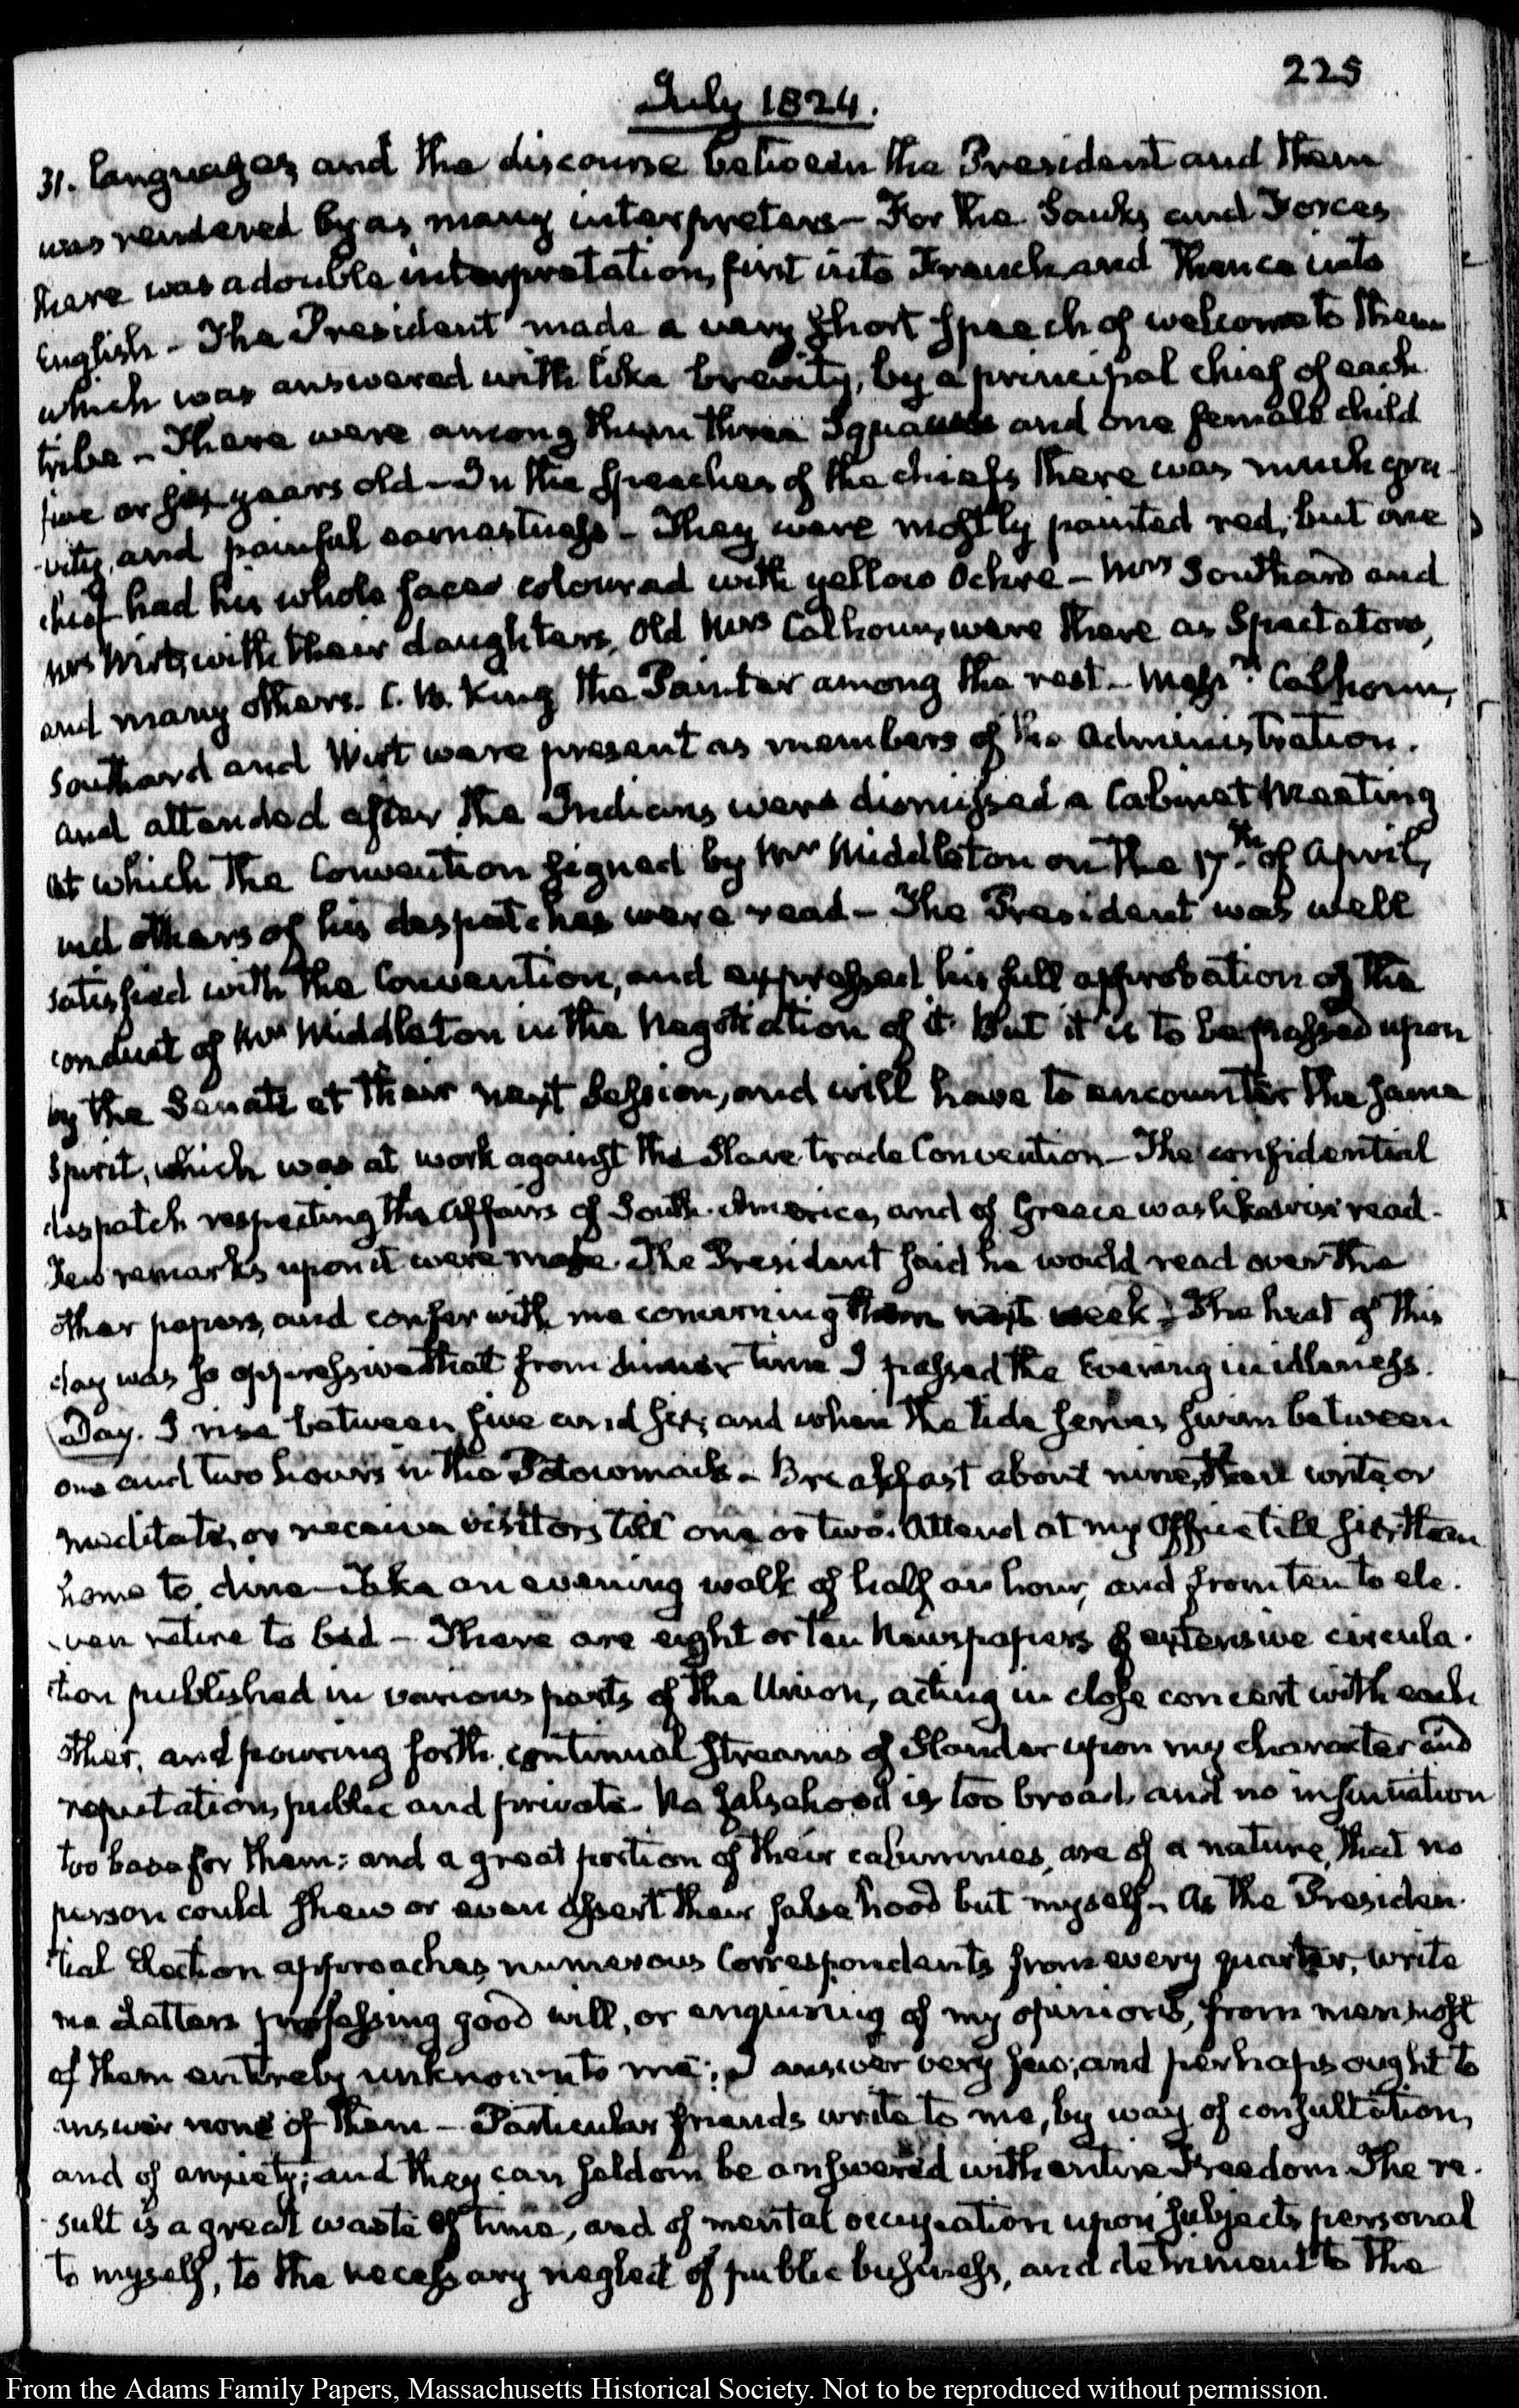 225
July 1824.
31. languages and the discourse between the President and them
was rendered by as many interpreters — For the Sauks and Foxes
there was a double interpretation, first into French and thence into
English — The President made a very short speech of welcome to them
which was answered with like brevity, by a principal chief of each
tribe — There were among them three Squaws and one female child
five or six years old — In the speeches of the chiefs there was much gra-
-vity, and painful earnestness — They were mostly painted red, but one
chief had his whole face coloured with yellow Ochre — Mrs Southard and
Mrs Wirt, with their daughters, old Mrs Calhoun, were there as Spectators,
and many others. C. B. King the Painter among the rest — Messrs. Calhoun,
Southard and Wirt were present as members of the Administration.
and attended after the Indians were dismissed a Cabinet Meeting
at which the Convention signed by Mr Middleton on the 17th of April,
and others of his despatches were read — The President was well
satisfied with the Convention, and expressed his full approbation of the
conduct of Mr Middleton in the Negotiation of it. But it is to be passed upon
by the Senate at their next Session, and will have to encounter the same
spirit, which was at work against the Slave trade Convention — The confidential
despatch respecting the affairs of South-America, and of Greece was likewise read —
Few remarks upon it were made. The President said he would read over the
other papers, and confer with me concerning them next week. The heat of this
day was so oppressive that from dinner time I passed the Evening in idleness.
Day. I rise between five and six; and when the tide serves swim between
one and two hours in the Potowmack — Breakfast about nine, then write or
meditate, or receive visitors till one or two. Attend at my Office till six, then
home to dine — take an evening walk of half an hour, and from ten to ele-
-ven retire to bed — There are eight or ten Newspapers of extensive circula-
-tion published in various parts of the Union, acting in close concert with each
other, and pouring forth continual streams of Slander upon my character and
reputation, public and private. No falsehood is too broad, and no insinuation
too base for them; and a great portion of their calumnies, are of a nature, that no
person could shew or even assert their falsehood but myself — As the Presiden-
tial Election approaches numerous Correspondents from every quarter, write
me Letters professing good will, or enquiring of my opinions, from men, most
of them entirely unknown to me; I answer very few; and perhaps ought to
answer none of them — Particular friends write to me, by way of consultation,
and of anxiety; and they can seldom be answered with entire Freedom. The re-
-sult is a great waste of time, and of mental occupation upon subjects personal
to myself, to the necessary neglect of public business, and detriment to the
From the Adams Family Papers, Massachusetts Historical Society. Not to be reproduced without permission.